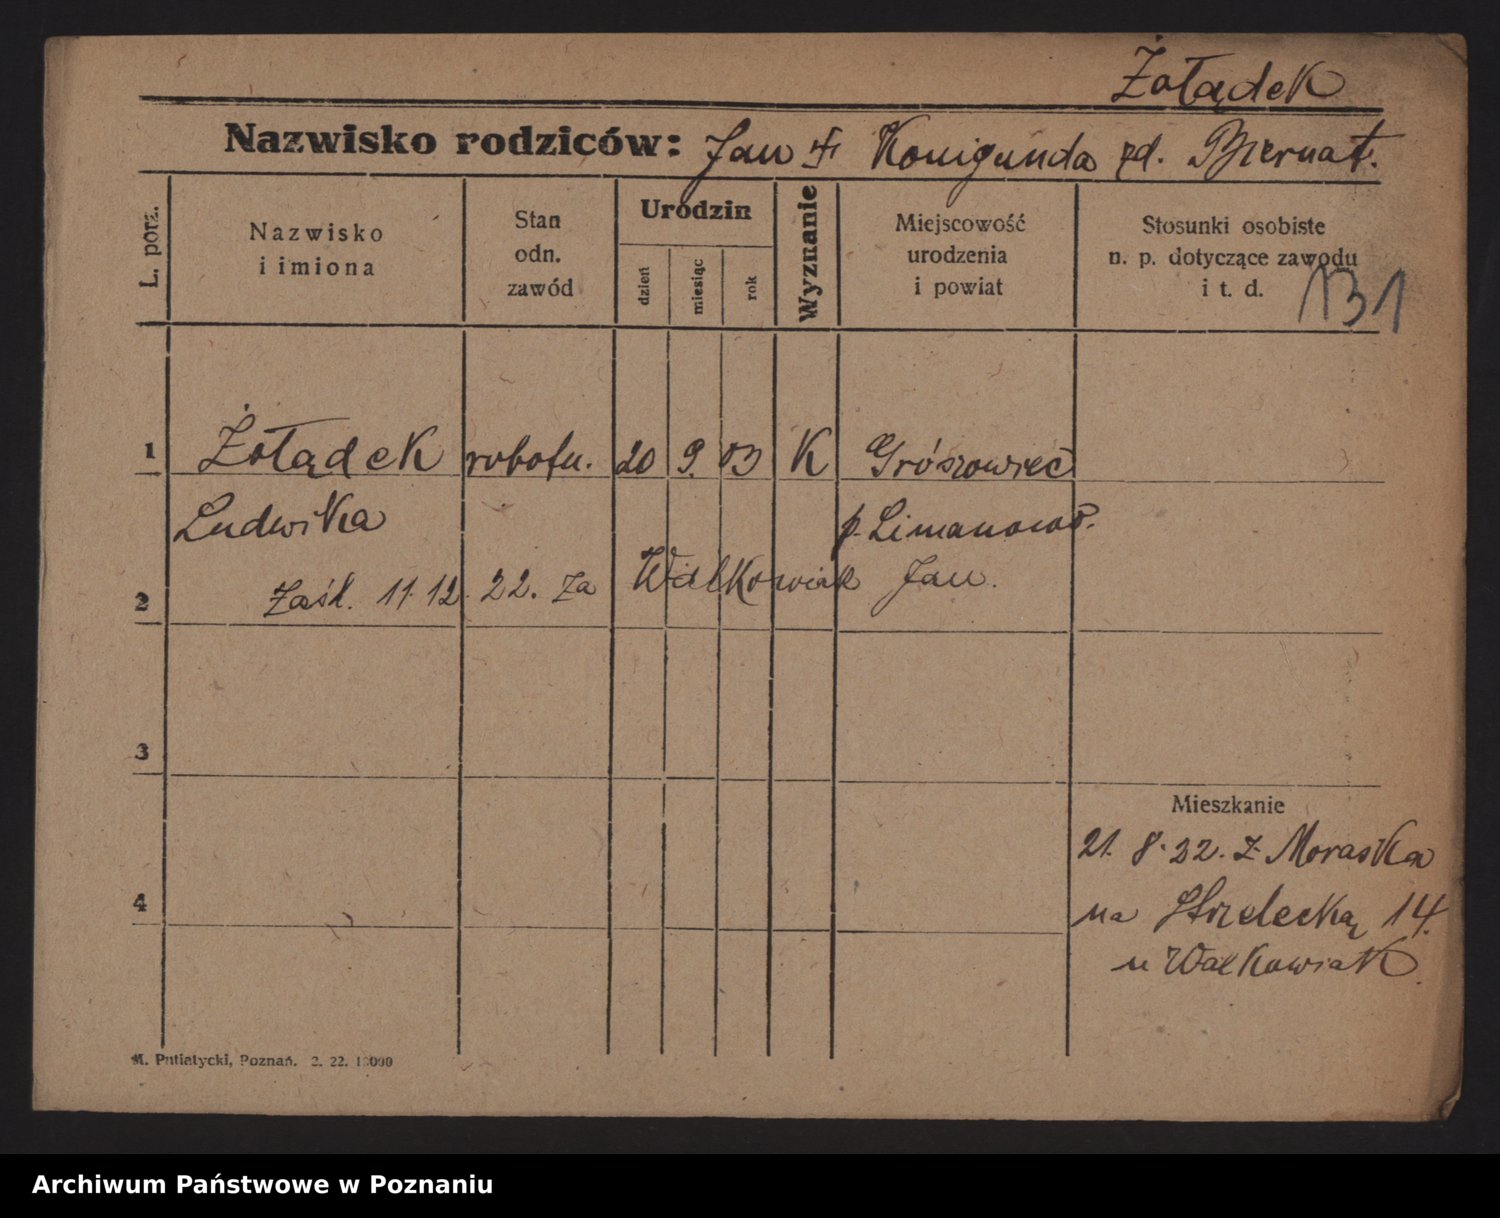 Żołądek
Nazwisko rodziców: Jan + Konigunda zd. Biernat.
L. porz.
Nazwisko
i imiona
Stan
odn.
zawód
Urodzin
dzień
miesiąc
rok
Wyznanie
Miejscowość
urodzenia
i powiat
Stosunki osobiste
n. p. dotyczące zawodu
i t. d.
131
1 Żołądek robotn. 20 9. 03 K
Ludwika p. Limanowa.
2 Zaśl. 11.12. 22. za Walkowiak Jan.
3
Mieszkanie
21. 8. 22. z Moraska
4 na Strzelecką 14.
u Walkowiak
M. Putiatycki, Poznań. 2. 22. 10000
Archiwum Państwowe w Poznaniu